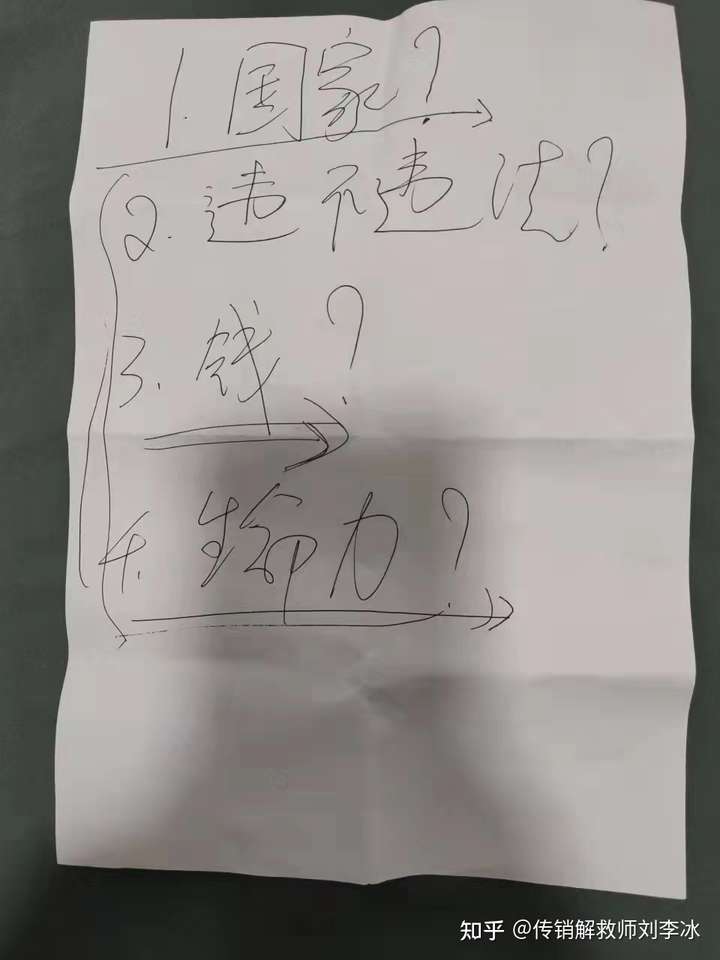 1. 国家?
2. 违不违法?
3. 钱?
4. 生命力?
知乎 @传销解救师刘李冰